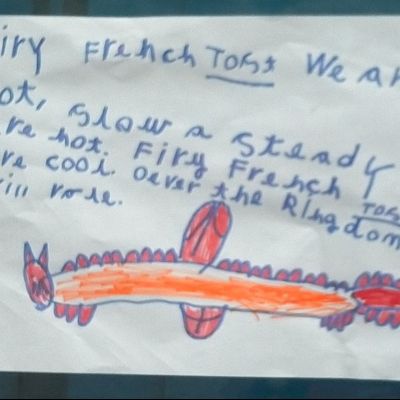 iry French Tost We ar
ot, slow a steady
re hot. Firy French Tos
re cool. Oever the Ringdom
ill rore.